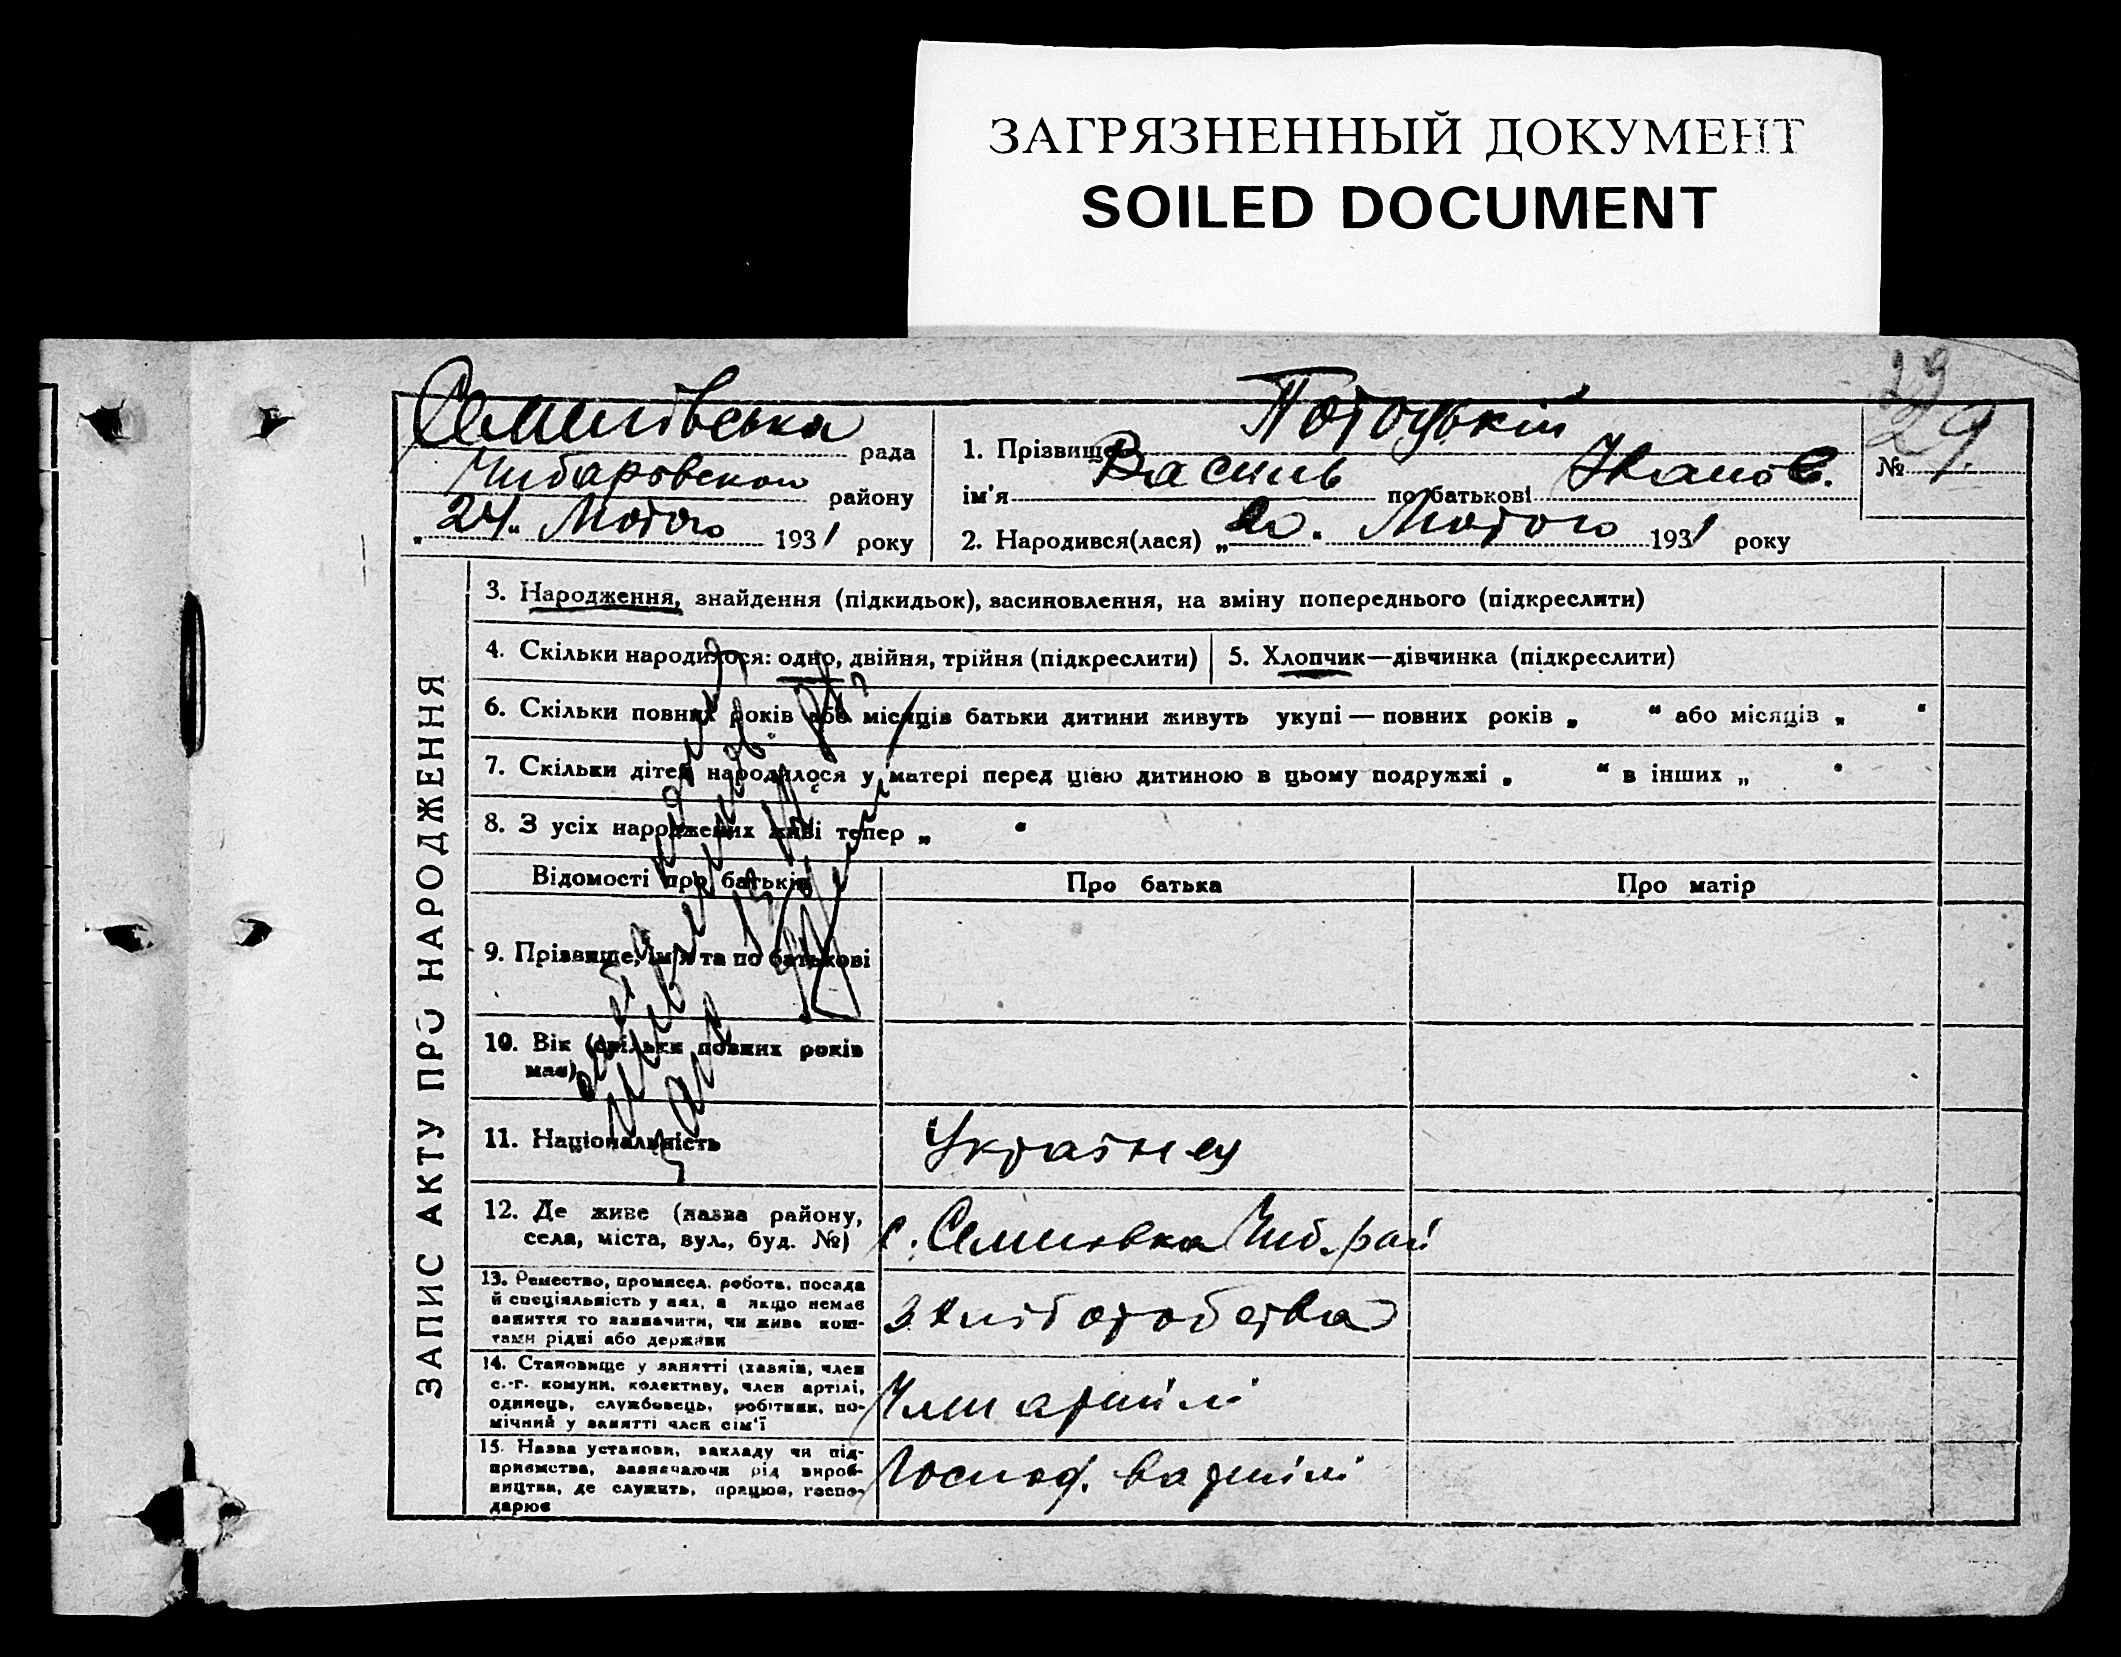 ЗАГРЯЗНЕННЫЙ ДОКУМЕНТ
SOILED DOCUMENT
рада
району
„24“ Лютого 1931 року
1. Прізвище Потоцькій
ім'я Василь по батькові Іванов.
2. Народився(лася) „20“ Лютого 1931 року
№ 29
ЗАПИС АКТУ ПРО НАРОДЖЕННЯ
3. Народження, знайдення (підкидьок), засиновлення, на зміну попереднього (підкреслити)
4. Скільки народилося: одно, двійня, трійня (підкреслити)
5. Хлопчик—дівчинка (підкреслити)
6. Скільки повних років або місяців батьки дитини живуть укупі — повних років „ “ або місяців „ “
7. Скільки дітей народилося у матері перед цією дитиною в цьому подружжі „ “ в інших „ “
8. З усіх народжених живі тепер „ “
Відомості про батьків
Про батька
Про матір
9. Прізвище, ім'я та по батькові
10. Вік (скільки повних років
має)
11. Національність
Українец
12. Де живе (назва району,
села, міста, вул., буд. №)
с. Семиовка Чиб. рай
13. Ремество, промисел, робота, посада
й спеціяльність у них, а якщо немає
заняття то зазначити, чи живе кош-
тами рідні або держави
З хліборобства
14. Становище у занятті (хазяїн, член
с.-г. комуни, колективу, член артілі,
одинець, службовець, робітник, по-
мічний у занятті член сім'ї
Член артилі
15. Назва установи, закладу чи під-
приємства, зазначаючи рід вироб-
ництва, де служить, працює, госпо-
дарює